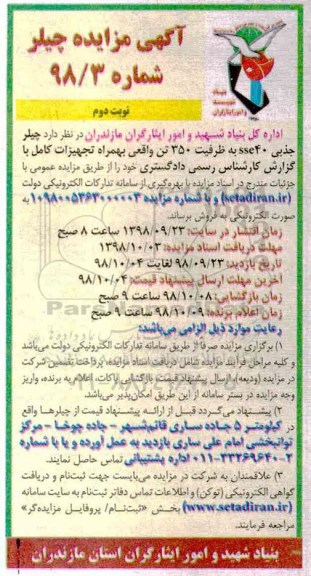 آگهی مزایده چیلر
شماره ۹۸/۳
بنیاد
شهید
و امور ایثارگران
نوبت دوم
اداره کل بنیاد شهید و امور ایثارگران مازندران در نظر دارد چیلر
جذبی sse۴۰ به ظرفیت ۳۵۰ تن واقعی بهمراه تجهیزات کامل با
گزارش کارشناس رسمی دادگستری خود را از طریق مزایده عمومی با
جزئیات مندرج در اسناد مزایده با بهره‌گیری از سامانه تدارکات الکترونیکی دولت
(setadiran.ir) و با شماره مزایده ۱۰۹۸۰۰۵۳۶۳۰۰۰۰۰۳ به
صورت الکترونیکی به فروش برساند.
زمان انتشار در سایت: ۱۳۹۸/۰۹/۲۳ ساعت ۸ صبح
مهلت دریافت اسناد مزایده: ۱۳۹۸/۱۰/۰۳
تاریخ بازدید: ۹۸/۰۹/۲۳ لغایت ۹۸/۱۰/۰۴
آخرین مهلت ارسال پیشنهاد قیمت: ۹۸/۱۰/۰۴
زمان بازگشایی: ۹۸/۱۰/۰۸ ساعت ۹ صبح
زمان اعلام برنده: ۹۸/۱۰/۰۹ ساعت ۹ صبح
رعایت موارد ذیل الزامی می‌باشد:
۱) برگزاری مزایده صرفا از طریق سامانه تدارکات الکترونیکی دولت می‌باشد
و کلیه مراحل فرآیند مزایده شامل دریافت اسناد مزایده، پرداخت تضمین شرکت
در مزایده (ودیعه)، ارسال پیشنهاد قیمت، بازگشایی پاکات، اعلام به برنده، واریز
وجه مزایده در بستر سامانه از این طریق امکان‌پذیر می‌باشد.
۲) پیشنهاد می‌گردد قبل از ارائه پیشنهاد قیمت از چیلرها واقع
در کیلومتر ۵ جاده ساری قائم‌شهر - جاده جوخا - مرکز
توانبخشی امام علی ساری بازدید به عمل آورده و یا با شماره
۰۱۱-۳۳۲۶۹۶۴۰-۲ اداره پشتیبانی تماس حاصل نمایند.
۳) علاقمندان به شرکت در مزایده می‌بایست جهت ثبت‌نام و دریافت
گواهی الکترونیکی (توکن) و اطلاعات تماس دفاتر ثبت‌نام به سایت سامانه
(www.setadiran.ir) بخش «ثبت‌نام/ پروفایل مزایده‌گر»
مراجعه فرمایند.
بنیاد شهید و امور ایثارگران استان مازندران